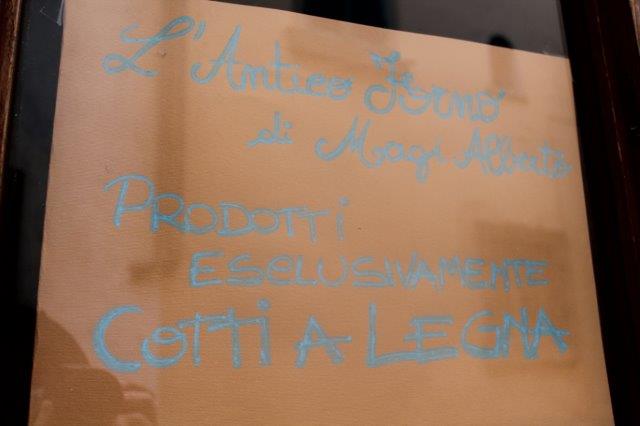 L'Antico Forno
di Magi Alberto
PRODOTTi
ESCLUSIVAMENTE
COTTi A LEGNA